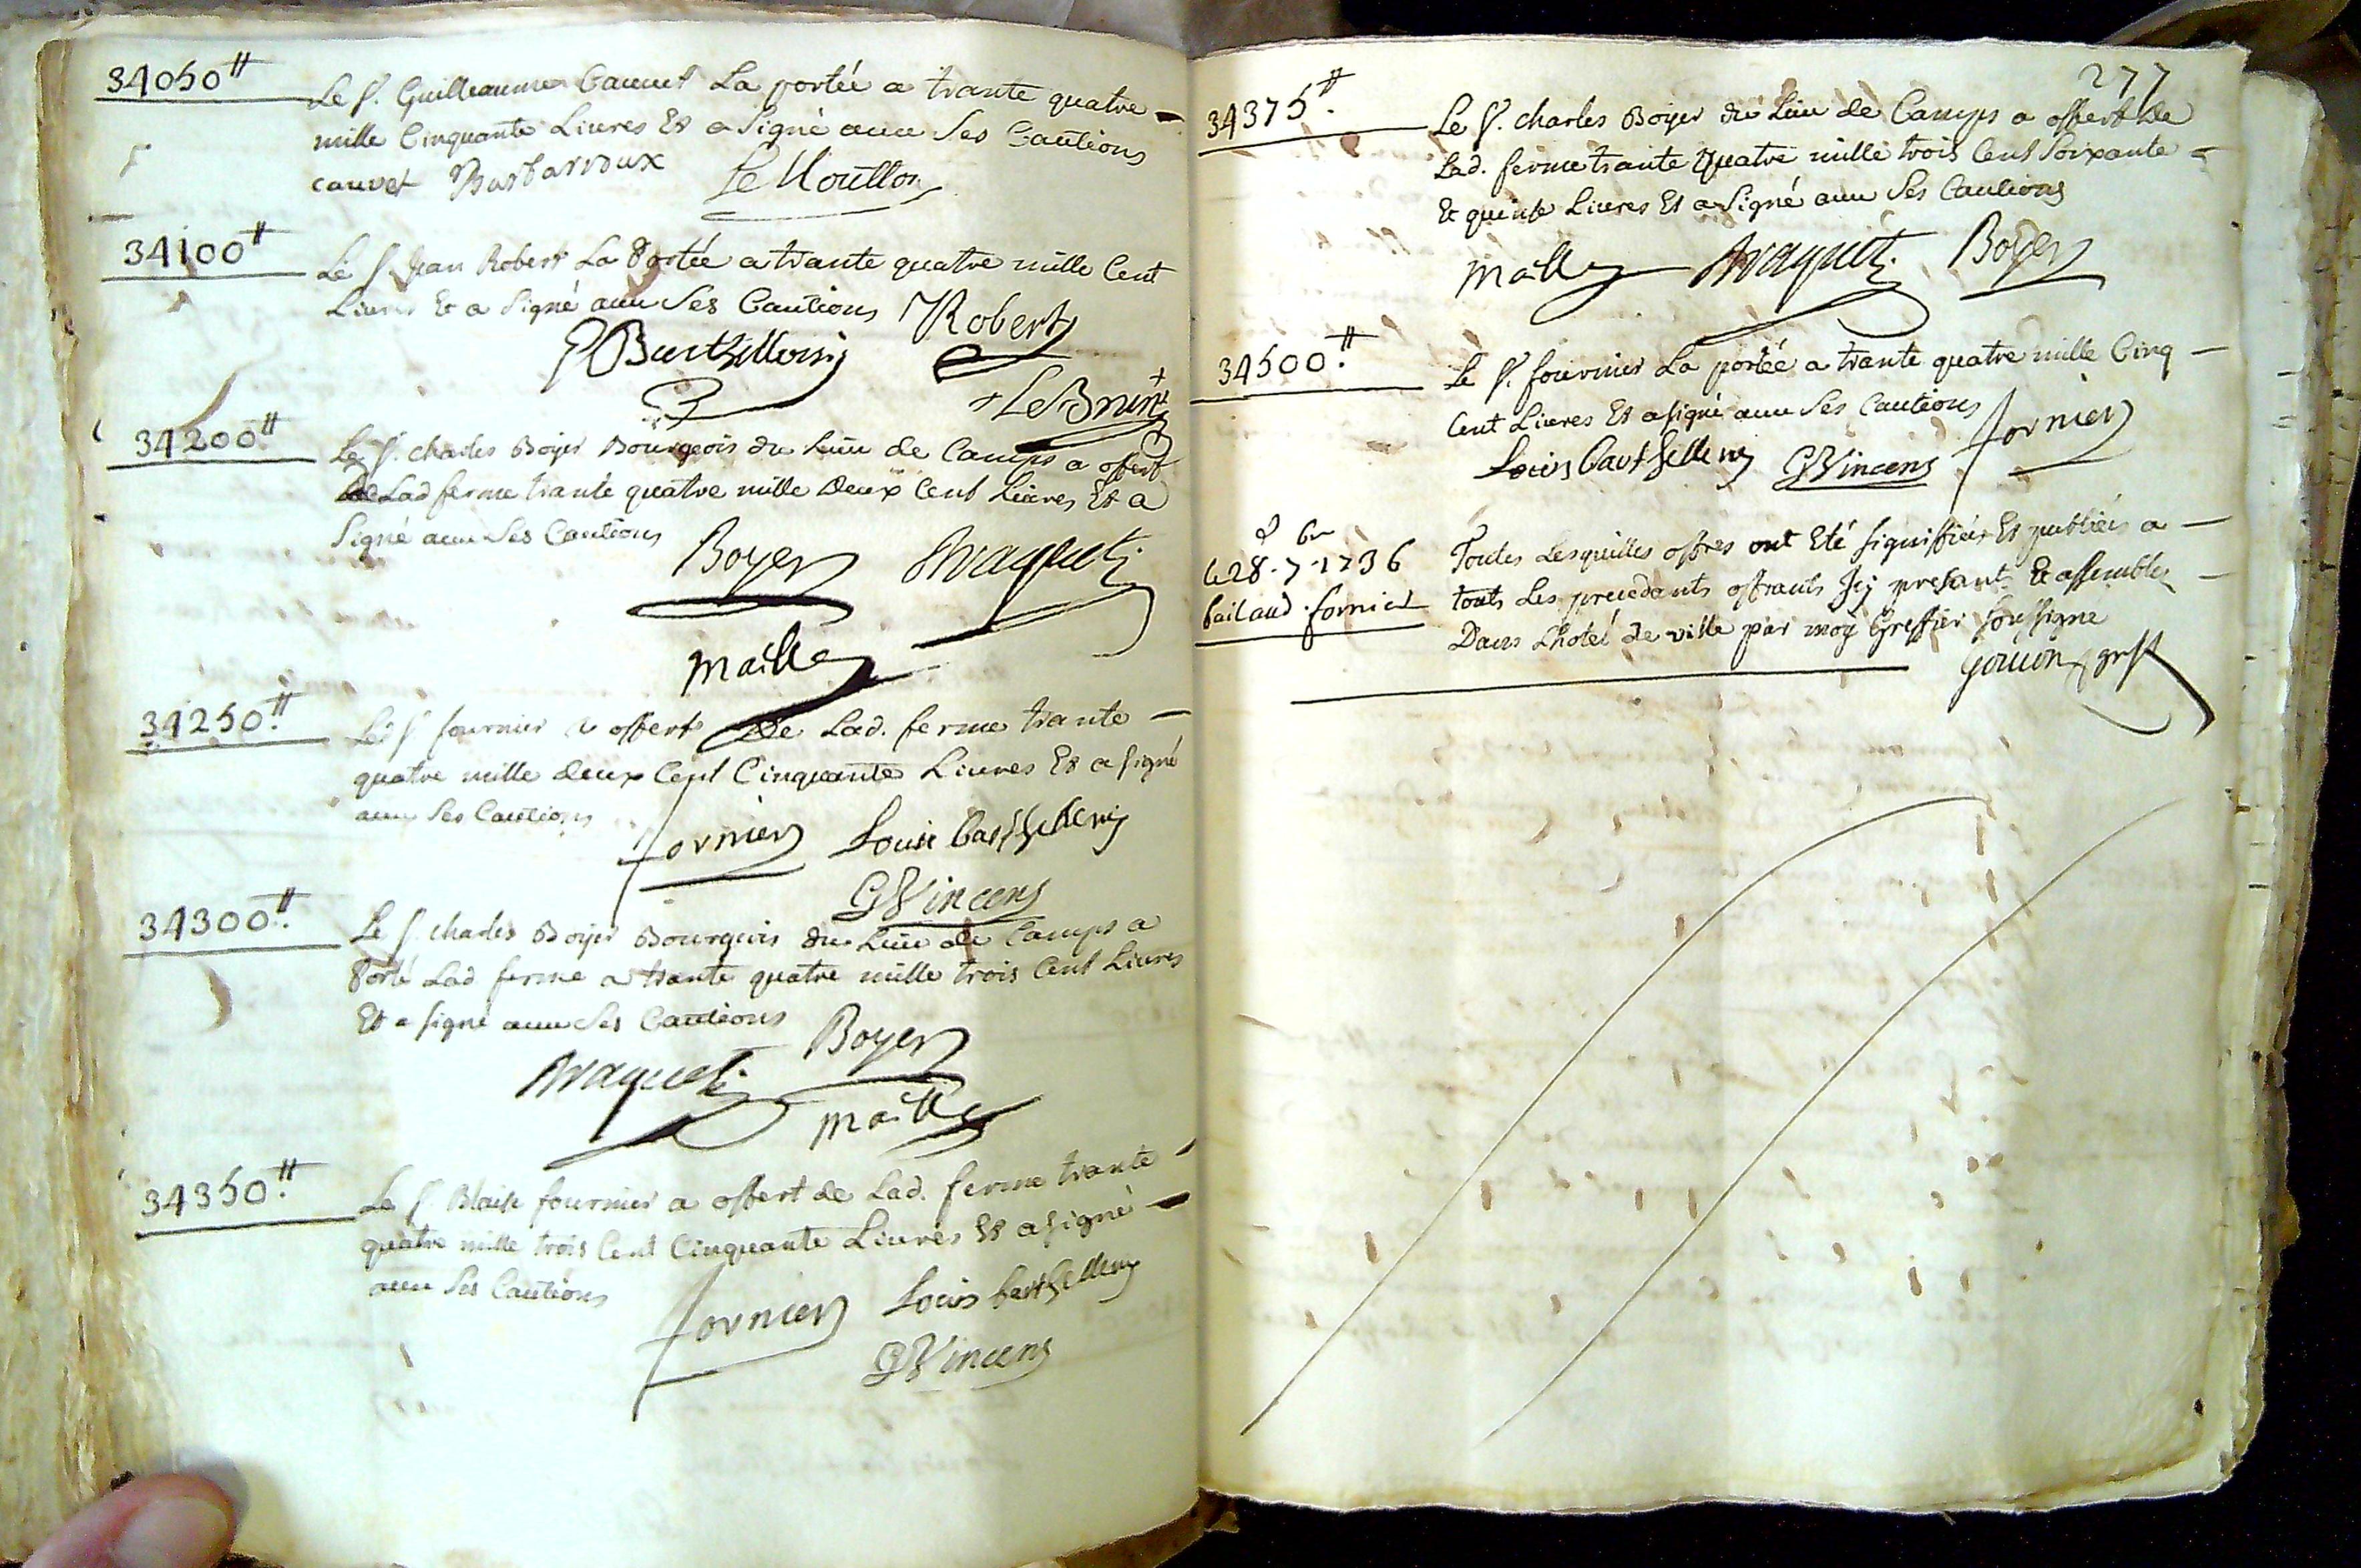 34050₶
Le S. Guilleaume Cauvet La portée a trante quatre
mille Cinquante Liures Et a Signé auec Ses Cautions
cauvet Barbarroux
34100₶
Le S. Jean Robert La Portée a trante quatre mille Cent
Liures Et a Signé auec Ses Cautions Robert
Barthellemy
LeBrun
34200₶
Le S. charles Boyer Bourgeois du Lieu de Camps a offert
de Lad ferme trante quatre mille Deux Cent Liures Et a
Signé auec Ses Cautions Boyer Braquety
maille
34250₶
Led S. fournier a offert De Lad. ferme trante
quatre mille deux Cent Cinquante Liures Et a signé
auec Ses Cautions fornier Louis Barthellemy
G Vincens
34300₶
Le S. charles Boyer Bourgeois du Lieu de Camps a
Porté Lad ferme a trante quatre mille trois Cent Liures
Et a signé auec Ses Cautions Boyer
Braquety maille
34350₶
Le S. Blaise fournier a offert de Lad. ferme trante
quatre mille trois Cent Cinquante Liures Et a signé
auec Ses Cautions fornier Louis barthellemy
G Vincens
277
34375₶
Le S. charles Boyer du Lieu de Camps a offert De
Lad. ferme trante Quatre mille trois Cent Soixante
Et quinse Liures Et a Signé auec Ses Cautions
maille Braquety Boyer
34500₶
Le S. fournier La portée a trante quatre mille Cinq
Cent Liures Et a signé auec Ses Cautions fornier
Louis Barthellemy G Vincens
Toutes Lesquelles offres ont Eté signiffiées Et publiées a
le 28. 7 1736
touts Les precedants offrants Icy presants Et assemblez
bailaud fornier
Dans Lhotel de ville par moy Greffier soussigne
Gouion greff